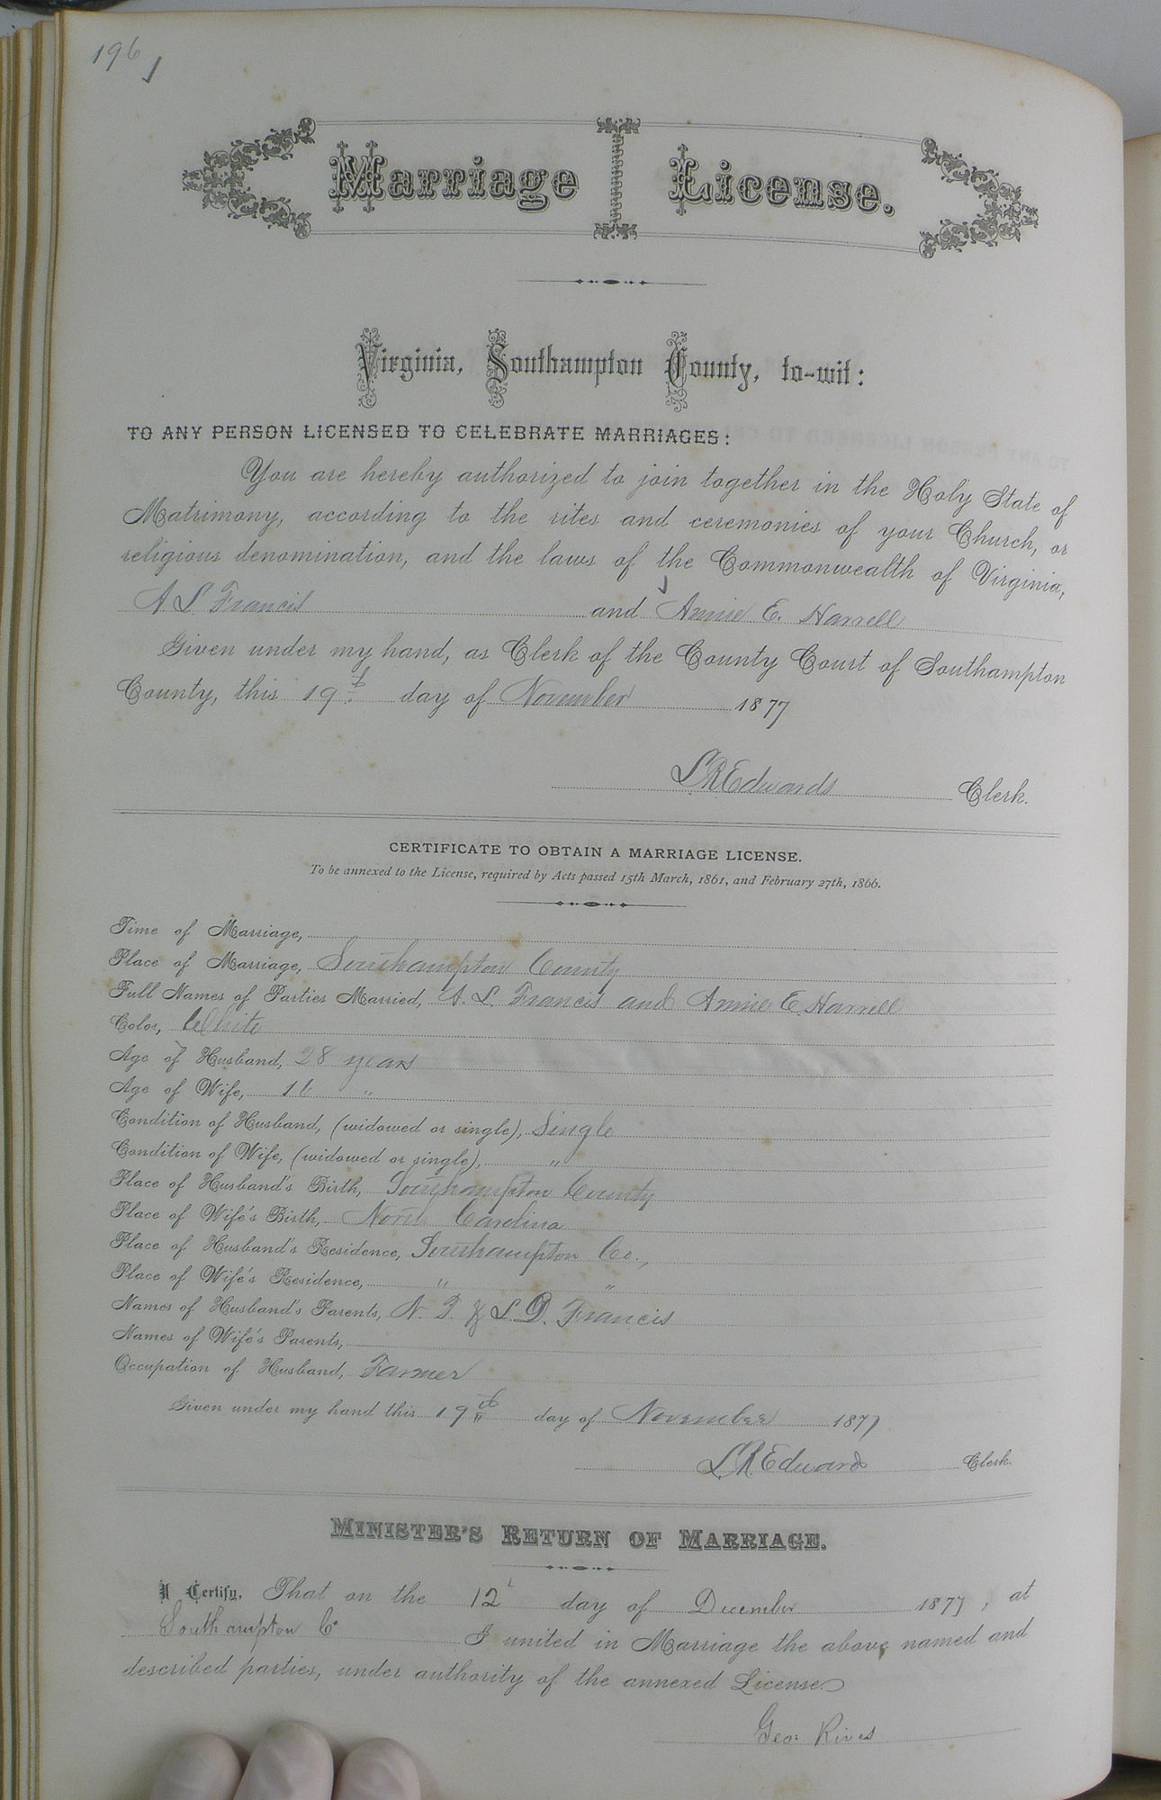 196
Marriage License.
Virginia, Southampton County, to-wit:
TO ANY PERSON LICENSED TO CELEBRATE MARRIAGES:
You are hereby authorized to join together in the Holy State of
Matrimony, according to the rites and ceremonies of your Church, or
religious denomination, and the laws of the Commonwealth of Virginia,
A L Francis and Annie E. Harrell
Given under my hand, as Clerk of the County Court of Southampton
County, this 19th day of November 1877
L R Edwards Clerk.
CERTIFICATE TO OBTAIN A MARRIAGE LICENSE.
To be annexed to the License, required by Acts passed 15th March, 1861, and February 27th, 1866.
Time of Marriage,
Place of Marriage, Southampton County
Full Names of Parties Married, A. L. Francis and Annie E. Harrell
Color, White
Age of Husband, 28 years
Age of Wife, 16 "
Condition of Husband, (widowed or single), Single
Condition of Wife, (widowed or single), "
Place of Husband's Birth, Southampton County
Place of Wife's Birth, North Carolina
Place of Husband's Residence, Southampton Co.,
Place of Wife's Residence, " "
Names of Husband's Parents, & L. D. Francis
Names of Wife's Parents,
Occupation of Husband, Farmer
Given under my hand this 19th day of November 1877
L R Edwards Clerk.
MINISTER'S RETURN OF MARRIAGE.
I Certify, That on the 12 day of December 1877, at
Southampton Co I united in Marriage the above named and
described parties, under authority of the annexed License.
Geo: Rives